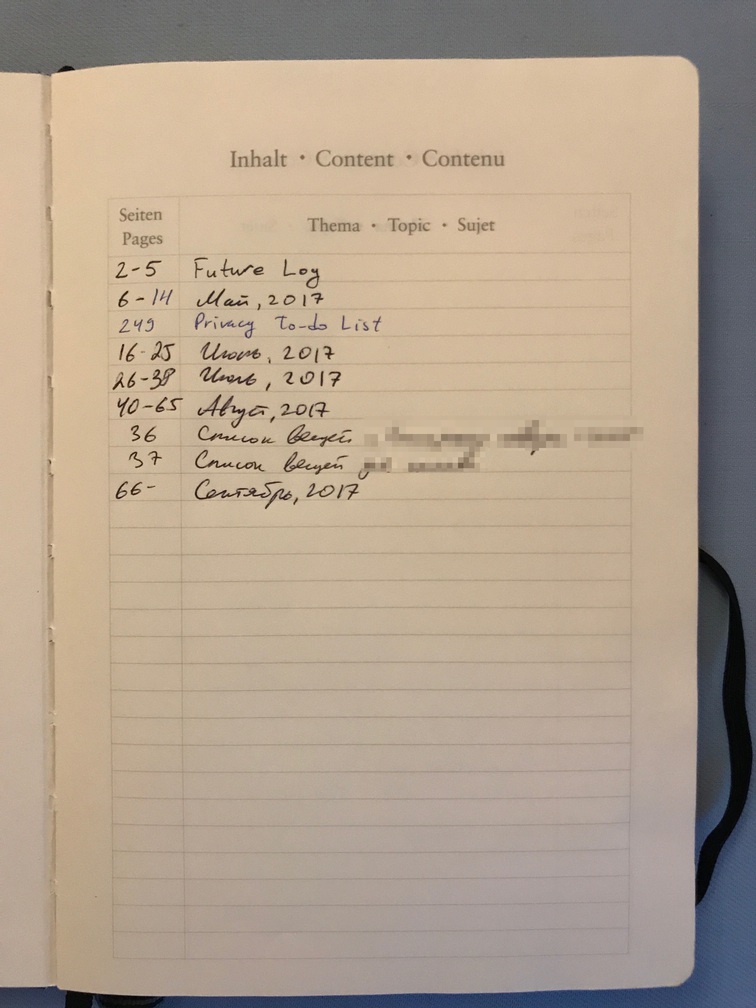 Inhalt • Content • Contenu
Seiten
Pages
Thema • Topic • Sujet
2-5 Future Log
6-14 Май, 2017
249 Privacy To-do List
16-25 Июнь, 2017
26-38 Июль, 2017
40-65 Август, 2017
36 Список вещей
37 Список вещей
66- Сентябрь, 2017